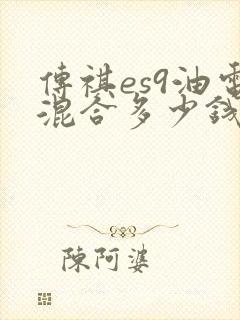 傳祺es9油電
混合多少錢
陳阿婆